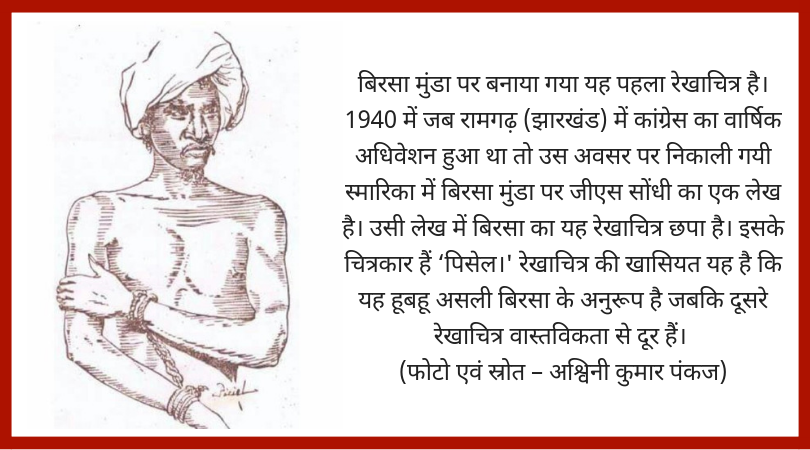 बिरसा मुंडा पर बनाया गया यह पहला रेखाचित्र है।
1940 में जब रामगढ़ (झारखंड) में कांग्रेस का वार्षिक
अधिवेशन हुआ था तो उस अवसर पर निकाली गयी
स्मारिका में बिरसा मुंडा पर जीएस सोंधी का एक लेख
है। उसी लेख में बिरसा का यह रेखाचित्र छपा है। इसके
चित्रकार हैं ‘पिसेल।' रेखाचित्र की खासियत यह है कि
यह हूबहू असली बिरसा के अनुरूप है जबकि दूसरे
रेखाचित्र वास्तविकता से दूर हैं।
(फोटो एवं स्रोत – अश्विनी कुमार पंकज)